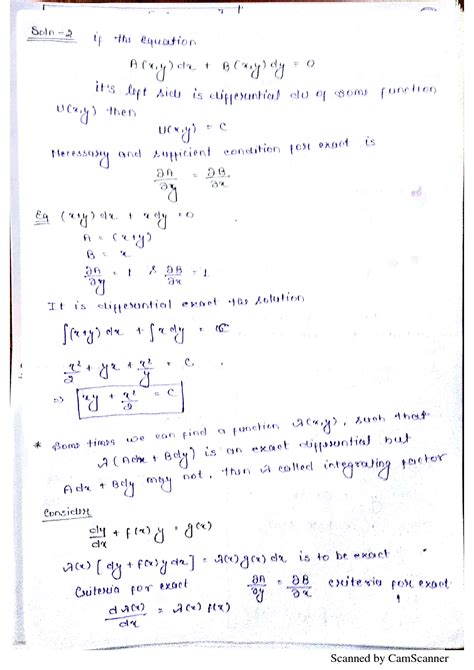 Soln-2 if the equation
A(x,y)dx + B(x,y)dy = 0
it's left side is differential dU of some function
U(x,y) then
U(x,y) = C
Necessary and sufficient condition for exact is
∂A/∂y = ∂B/∂x
Eg (x+y)dx + xdy = 0
A = (x+y)
B = x
∂A/∂y = 1 & ∂B/∂x = 1
It is differential exact the solution
∫(x+y)dx + ∫xdy = C
x²/2 + yx + x²/y = C
⇒ xy + x²/2 = C
* Some times we can find a function λ(x,y), such that
λ(Adx + Bdy) is an exact differential but
Adx + Bdy may not, then λ called integrating factor
Consider
dy/dx + f(x)y = g(x)
λ(x)[dy + f(x)ydx] = λ(x)g(x)dx is to be exact
Criteria for exact ∂A/∂y = ∂B/∂x criteria for exact
dλ(x)/dx = λ(x)f(x)
Scanned by CamScanner